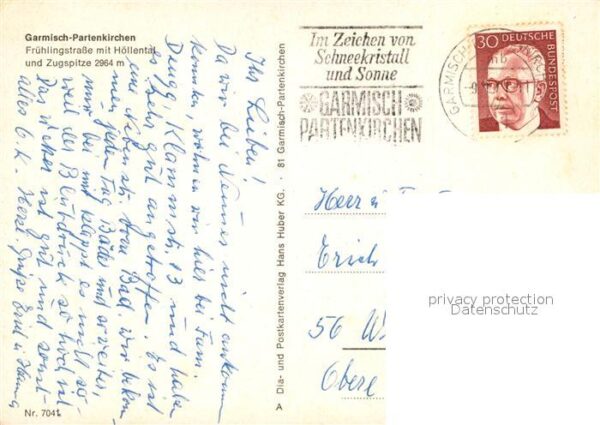 Garmisch-Partenkirchen
Frühlingstraße mit Höllental
und Zugspitze 2964 m
Ihr Lieben!
Da wir bei Neunes nicht ankommen
konnten, wohnen wir hier bei Fam.
Dengg, Klammstr. 13 und haben
es sehr gut angetroffen. Es ist
eine vom Bad. Wir
jeden Tag Bäder und arbeiten,
nur bei mir klappt es nicht
weil der Blutdruck so hoch ist
Das Wetter ist gut und sonst
alles O.K. Herzl. Grüße
Nr. 7041
A Dia- und Postkartenverlag Hans Huber KG. · 81 Garmisch-Partenkirchen
Im Zeichen von
Schneekristall
und Sonne
GARMISCH
PARTENKIRCHEN
GARMISCH
30 DEUTSCHE
BUNDESPOST
Herr u.
Erich
56 W
Obere
privacy protection
Datenschutz